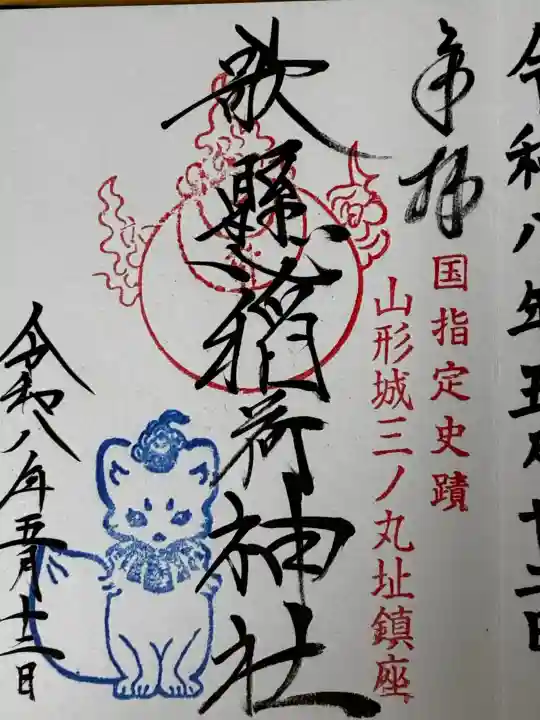 令和八年五月十二日
奉拝
国指定史蹟
山形城三ノ丸址鎮座
歌懸稲荷神社
令和八年五月十二日